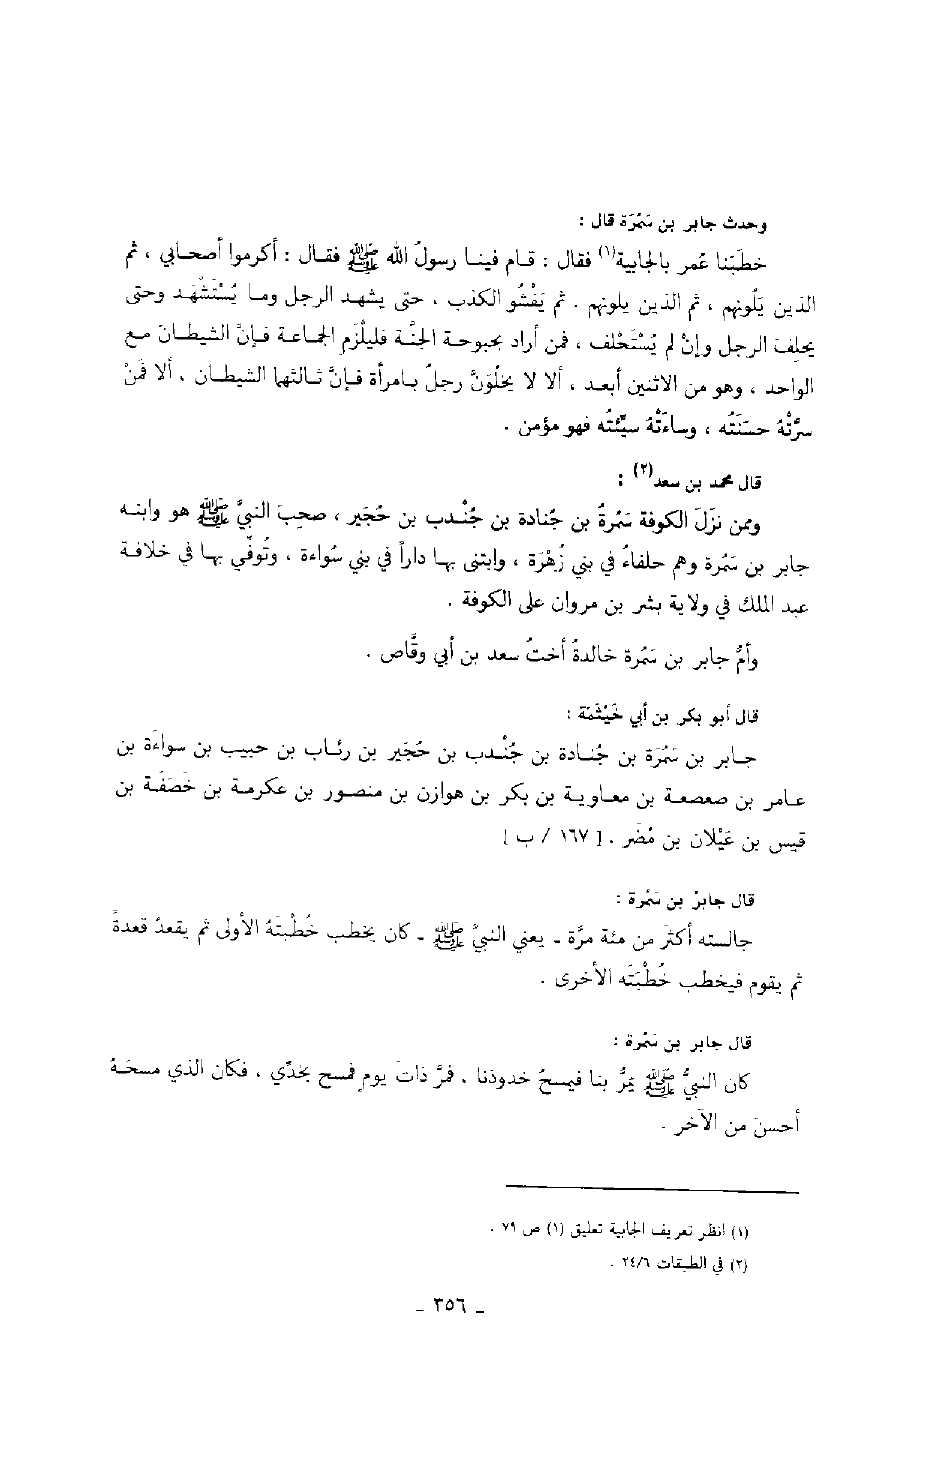 وحدث جابر بن سَمُرَة قال :
خطبَنا عُمر بالجابية(١) فقال : قـام فينـا رسولُ الله ﷺ فقـال : أكرموا أصحـابي ، ثم
الذين يَلُونهم ، ثم الذين يلونهم . ثم يَفْشُو الكذب ، حتى يشهـد الرجل ومـا يُسْتَشْهـد وحتى
يحلِفَ الرجل وإنْ لم يُسْتَحْلف ، فمن أراد بحبوحـة الجنَّـة فليلْزَم الجمـاعـة فـإنَّ الشيطـانَ مـع
الواحد ، وهو من الاثنين أبعـد ، ألا لا يخلُوَنَّ رجلٌ بـامرأة فـإنَّ ثـالثهـا الشيطـان ، ألا فَمَنْ
سرَّتْهُ حسنَتُه ، وساءَتْهُ سيِّئتُه فهو مؤمن .
قال محمد بن سعد(٢) :
وممن نزَلَ الكوفة سَمُرةُ بن جُنادة بن جُنْدب بن حُجَير ، صحبَ النبيَّ ﷺ هو وابنـه
جابر بن سَمُرة وهم حلفاءُ في بني زُهْرَة ، وابتنى بهـا داراً في بني سُواءة ، وتُوفِّي بهـا في خلافـة
عبد الملك في ولاية بشر بن مروان على الكوفة .
وأمُّ جابر بن سَمُرة خالدةُ أختُ سعد بن أبي وقَّاص .
قال أبو بكر بن أبي خَيْثَمَة :
جـابر بن سَمُرَة بن جُنـادة بن جُنْدب بن حُجَير بن رئـاب بن حبيب بن سواءَة بن
عـامر بن صعصعـة بن معـاويـة بن بكر بن هوازن بن منصـور بن عكرمـة بن خَصَفَـة بن
قيس بن عَيْلان بن مُضَر . [ ١٦٧ / ب ]
قال جابرُ بن سَمُرة :
جالسته أكثرَ من مئة مرَّة ـ يعني النبيَّ ﷺ ـ كان يخطب خُطْبتَهُ الأولى ثم يقعدُ قعدةً
ثم يقوم فيخطب خُطْبَتَه الأخرى .
قال جابر بن سَمُرة :
كان النبيُّ ﷺ يمرُّ بنا فيمسحُ خدودَنا ، فمرَّ ذاتَ يومٍ فمسح بخدِّي ، فكان الذي مسحَـهُ
أحسنَ من الآخر .
(١) انظر تعريف الجابية تعليق (١) ص ٧٩ .
(٢) في الطبقات ٢٤/٦ .
ـ ٣٥٦ ـ